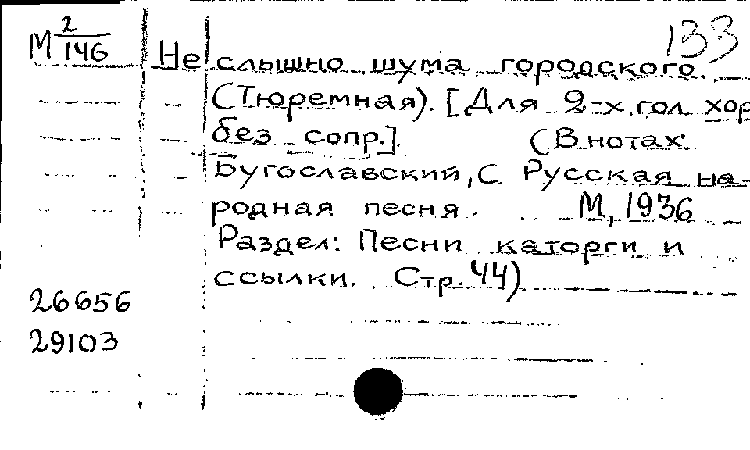 133
М 2/146
Не слышно шума городского.
(Тюремная). [Для 2-х.гол хор
без сопр.]. (В нотах:
Бугославский, С Русская на-
родная песня. М, 1936
Раздел: Песни каторги и
ссылки. Стр. 44)
26656
29103